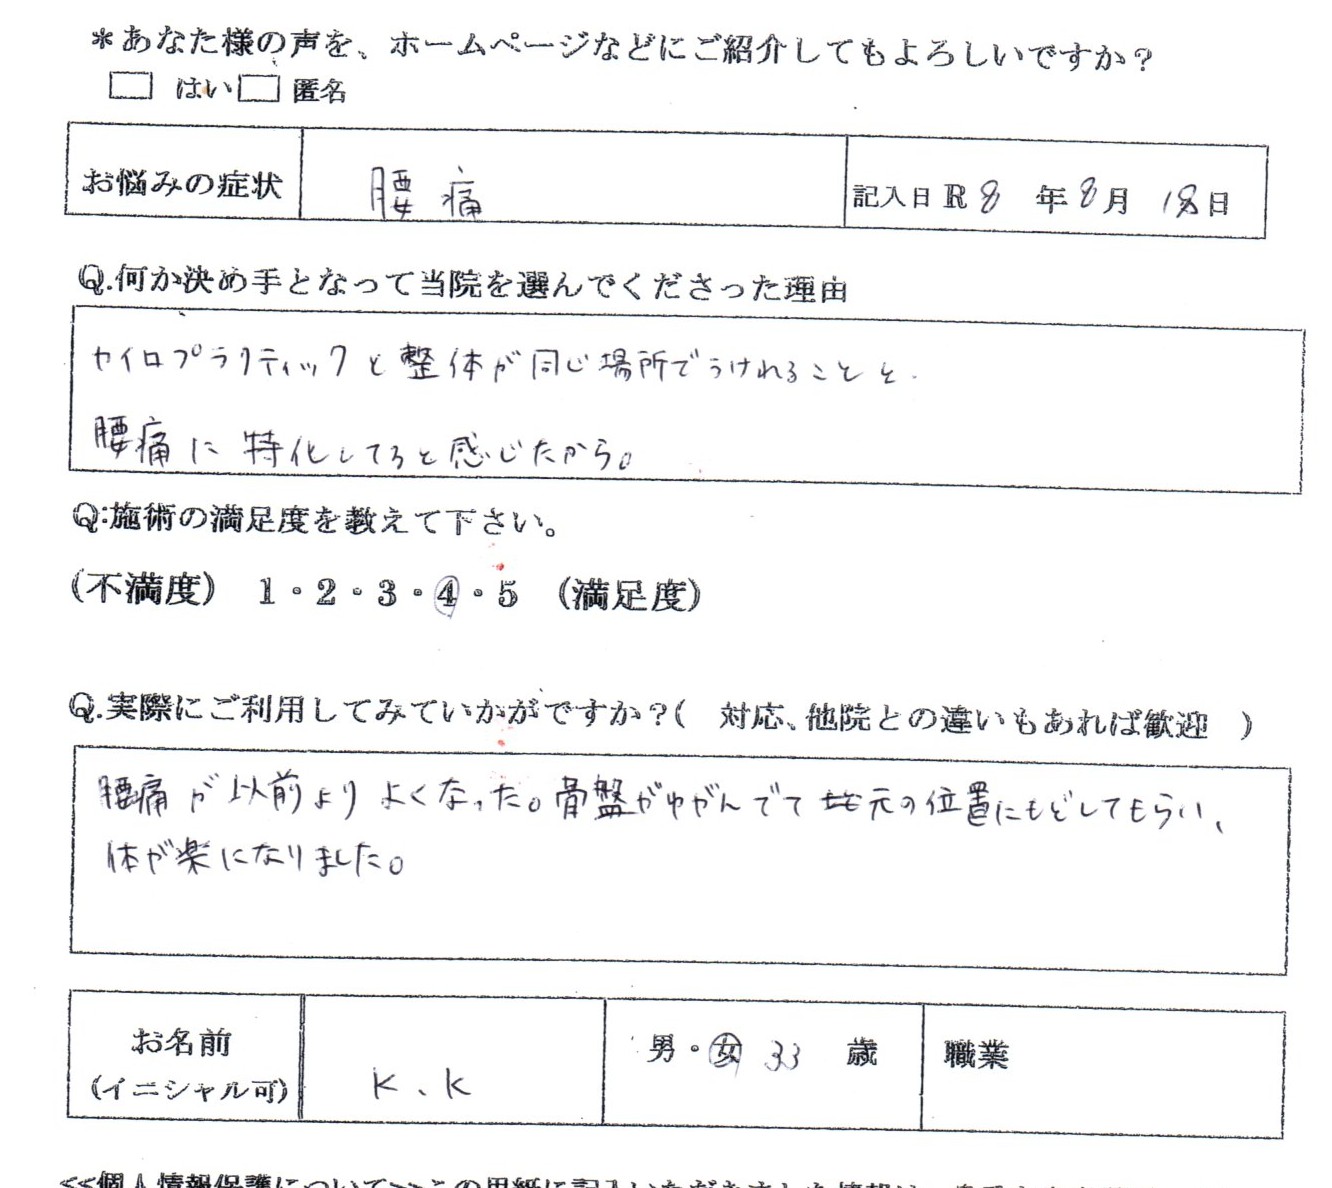 ＊あなた様の声を、ホームページなどにご紹介してもよろしいですか？
□ はい□ 匿名
お悩みの症状 腰痛 記入日 R 8 年 8 月 18 日
Q.何か決め手となって当院を選んでくださった理由
カイロプラクティックと整体が同じ場所でうけれることと
腰痛に特化してると感じたから。
Q:施術の満足度を教えて下さい。
(不満度) 1・2・3・④・5 (満足度)
Q.実際にご利用してみていかがですか？( 対応、他院との違いもあれば歓迎 )
腰痛が以前よりよくなった。骨盤がゆがんでて元の位置にもどしてもらい、
体が楽になりました。
お名前
(イニシャル可)
K、K
男・女 33 歳 職業
<<個人情報保護について>>この用紙に記入いただきました情報は、